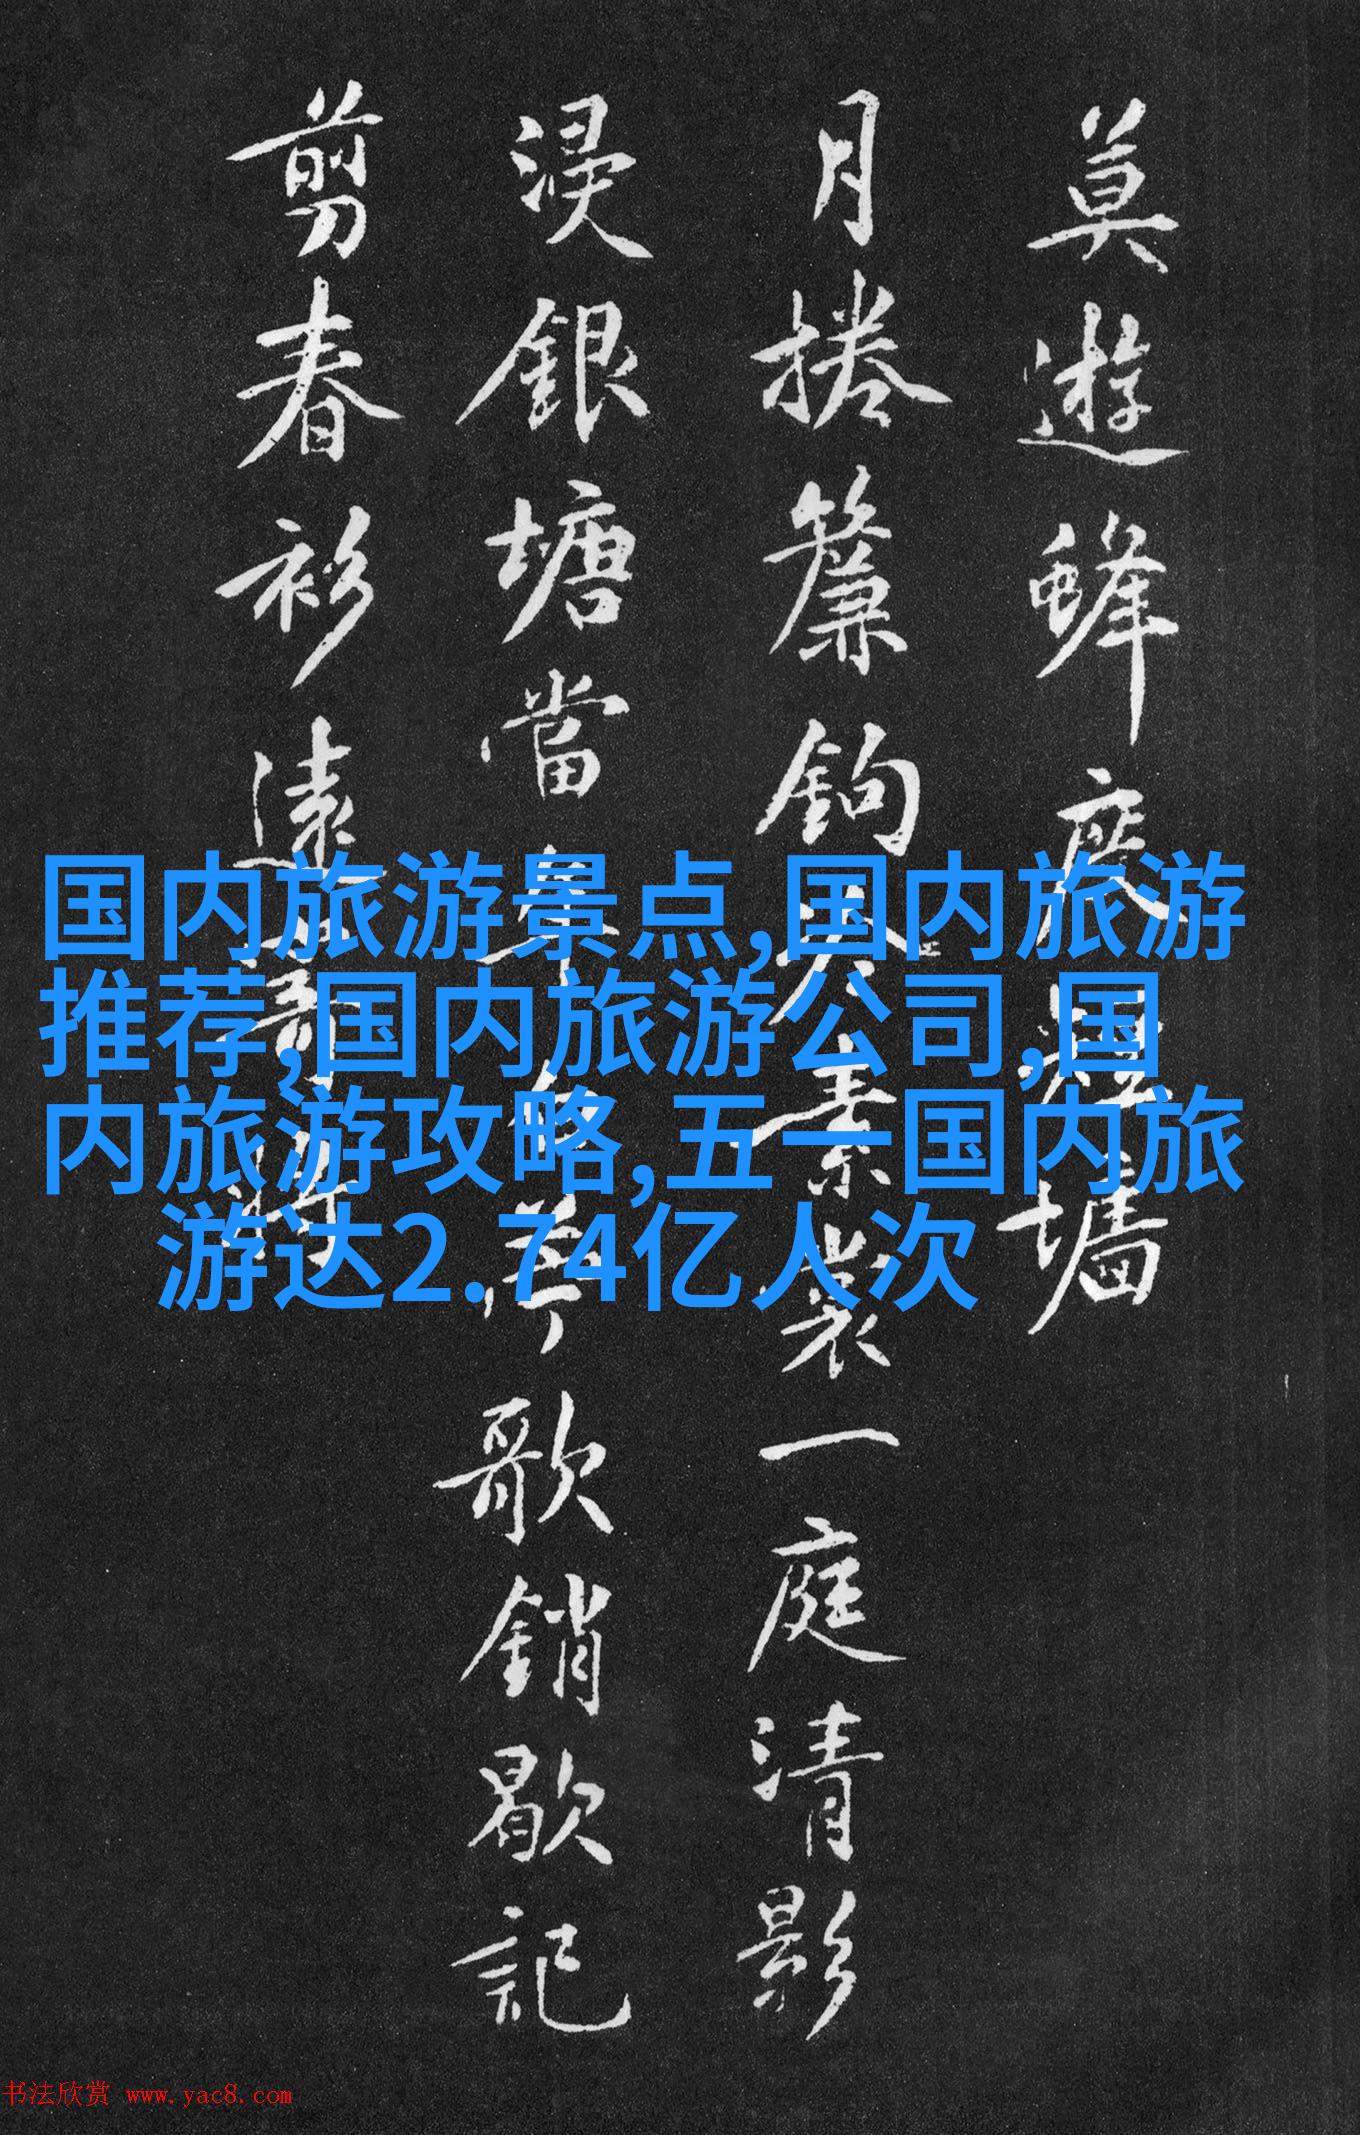 莫遊蜂
月捲簾鉤
一庭清影
浸銀塘當年
歌銷歇記
剪春衫遠
国内旅游景点,国内旅游
推荐,国内旅游公司,国
内旅游攻略,五一国内旅
游达2.74亿人次
书法欣赏 www.yac8.com